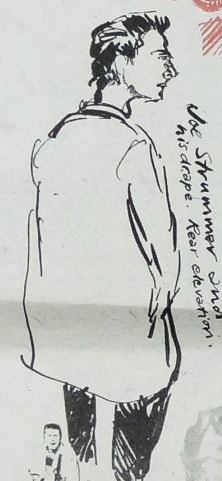 Joe Strummer and
his drape. Rear elevation.